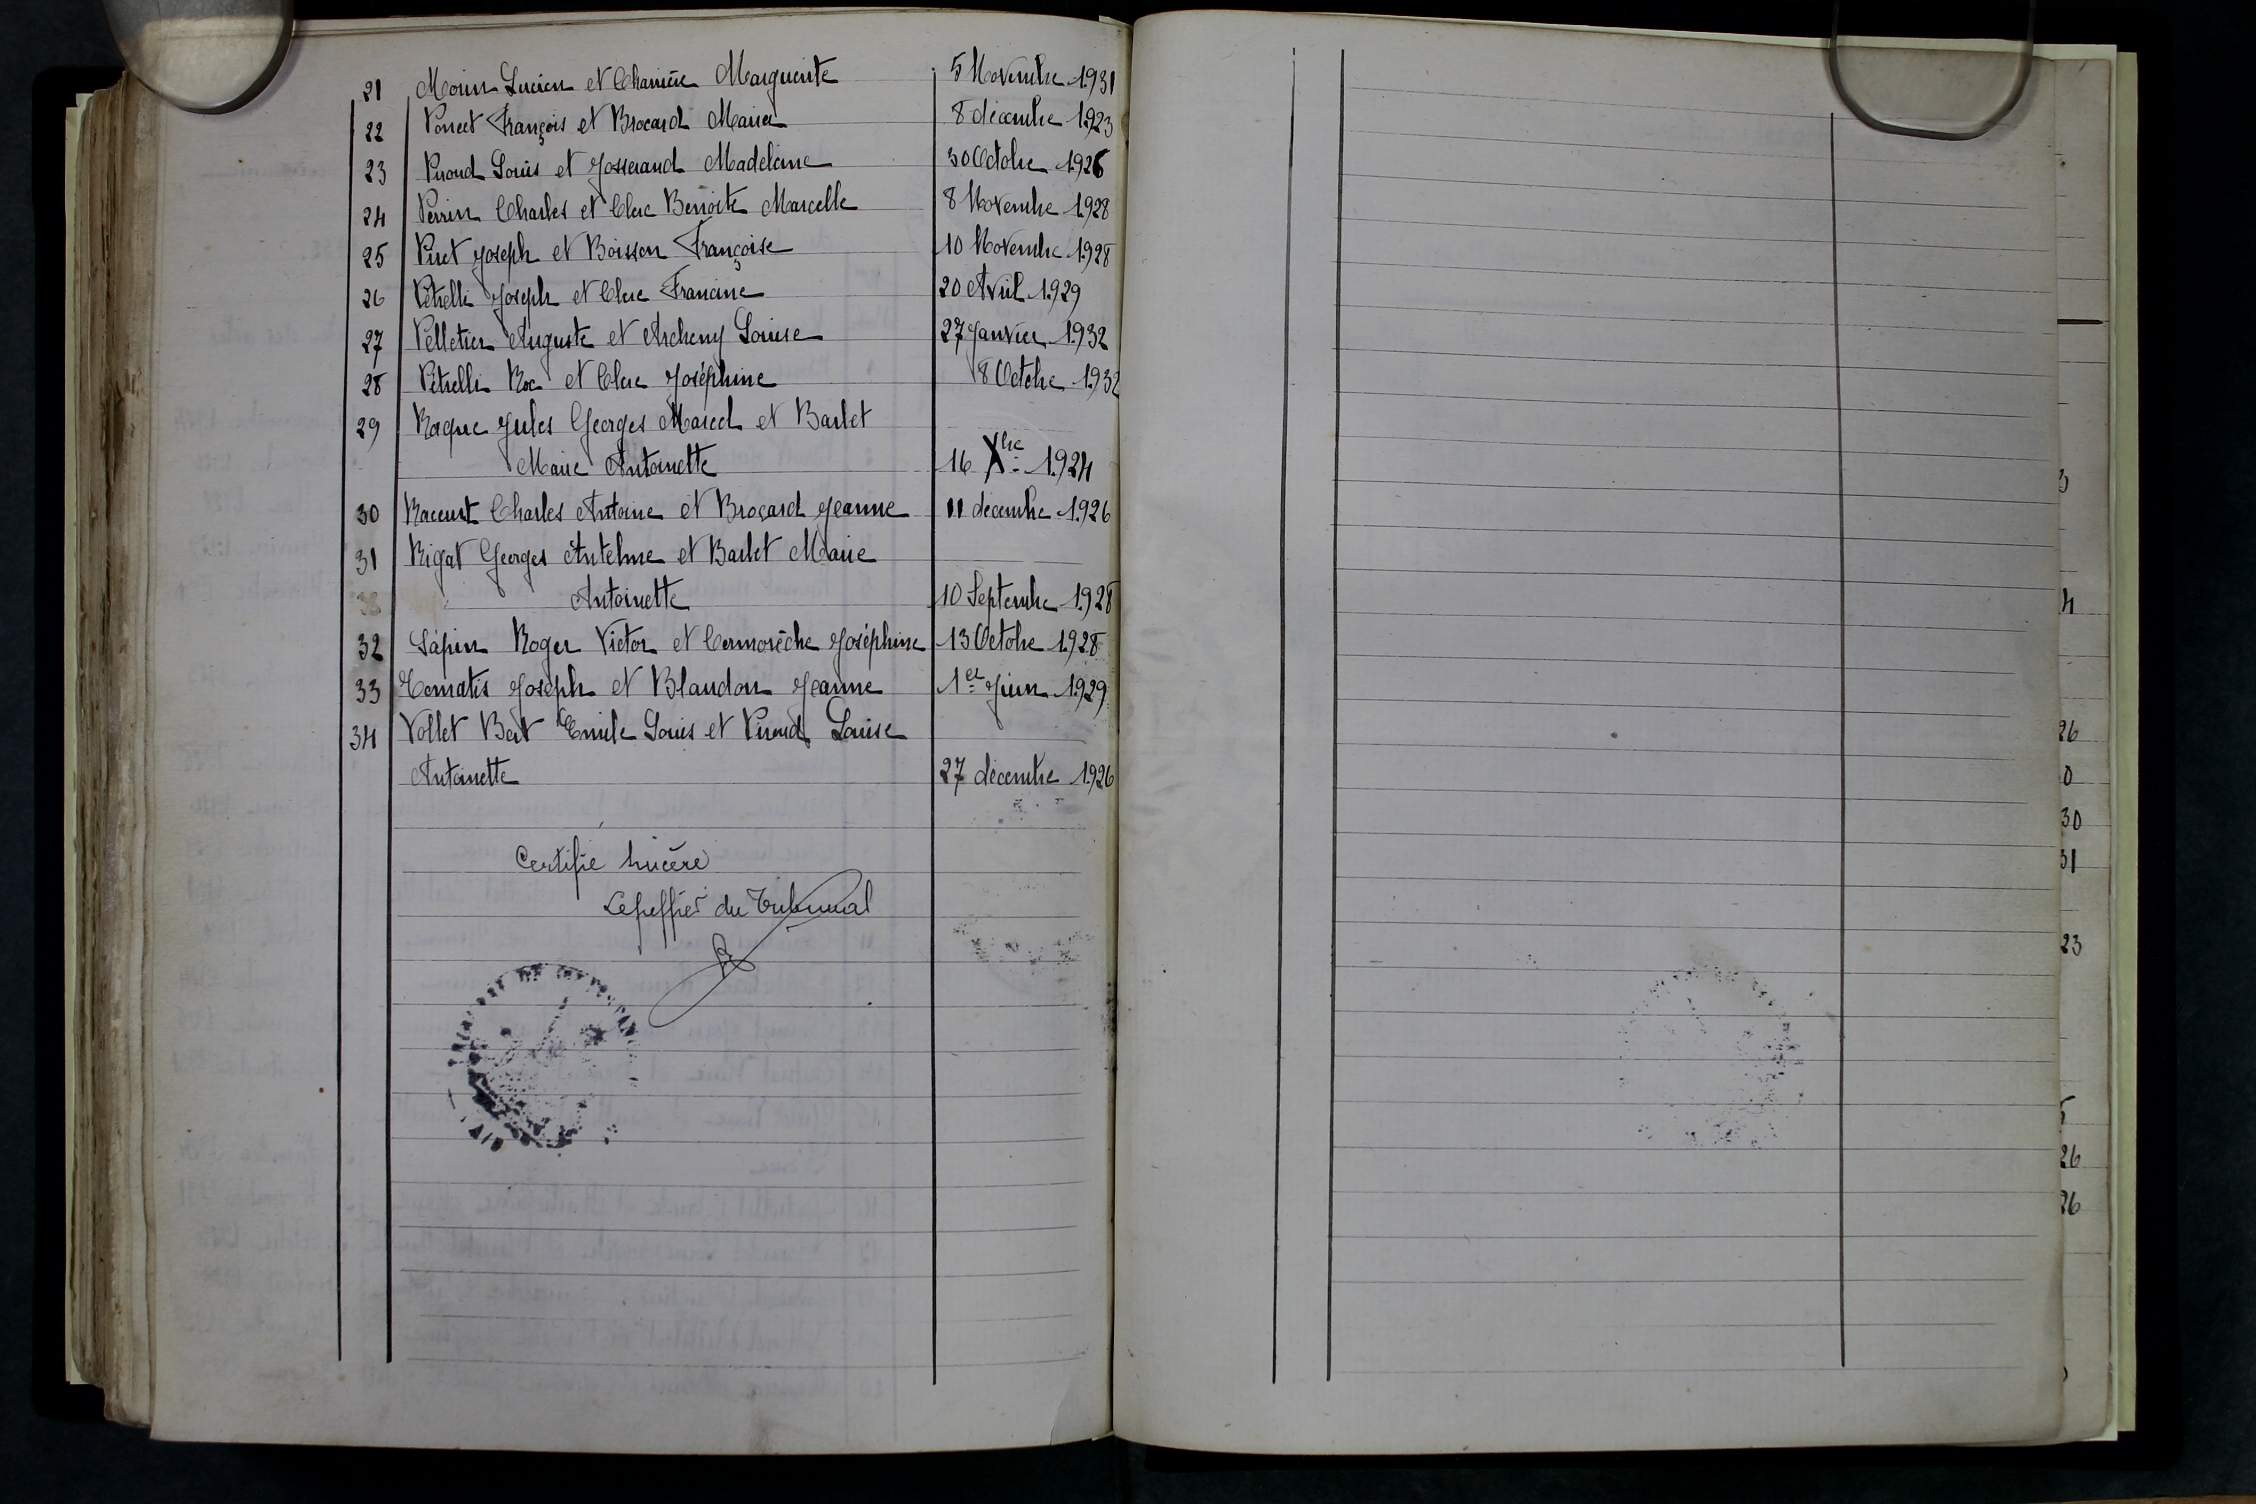 21 Morin Lucien et Charrière Marguerite 5 Novembre 1931
22 Poncet François et Brocard Maria 8 décembre 1923
23 Piroud Louis et Josserand Madeleine 30 Octobre 1926
24 Perrin Charles et Clerc Benoite Marcelle 8 Novembre 1928
25 Piret Joseph et Boisson Françoise 10 Novembre 1928
26 Pétrelli Joseph et Clerc Francine 20 Avril 1929
27 Pelletier Auguste et Archeny Louise 27 Janvier 1932
28 Pétrelli Roc et Clerc Joséphine 8 Octobre 1932
29 Raquie Jules Georges Marcel et Barlet
Marie Antoinette 16 Xbre 1924
30 Raccurt Charles Antoine et Brocard Jeanne 11 décembre 1926
31 Rigat Georges Antelme et Barlet Marie
Antoinette 10 Septembre 1928
32 Sapin Roger Victor et Cormorèche Joséphine 13 Octobre 1928
33 Tomatis Joseph et Blandon Jeanne 1er Juin 1929
34 Vollet Bert Emile Louis et Piroud Louise
Antoinette 27 décembre 1926
Certifié sincère
Le greffier du Tribunal
AIN
26
0
30
31
23
26
26